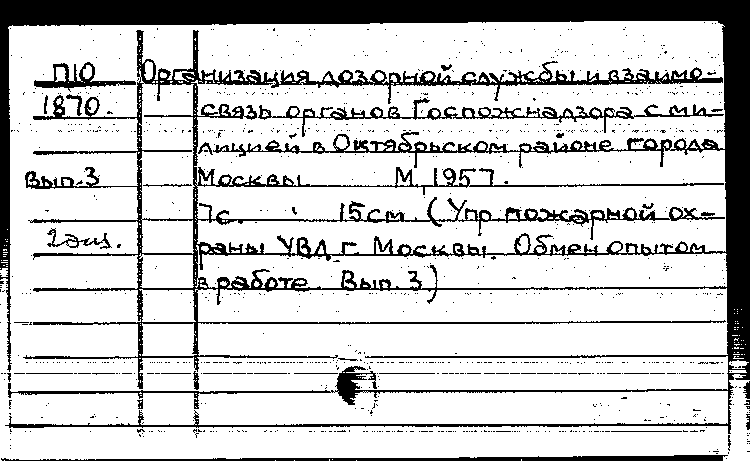 П10 Организация дозорной службы и взаимо-
1870. связь органов Госпожнадзора с ми-
лицией в Октябрьском районе города
Вып.3 Москвы. М., 1957.
7с. 15см. (Упр. пожарной ох-
2 экз. раны УВД г. Москвы. Обмен опытом
в работе. Вып. 3)